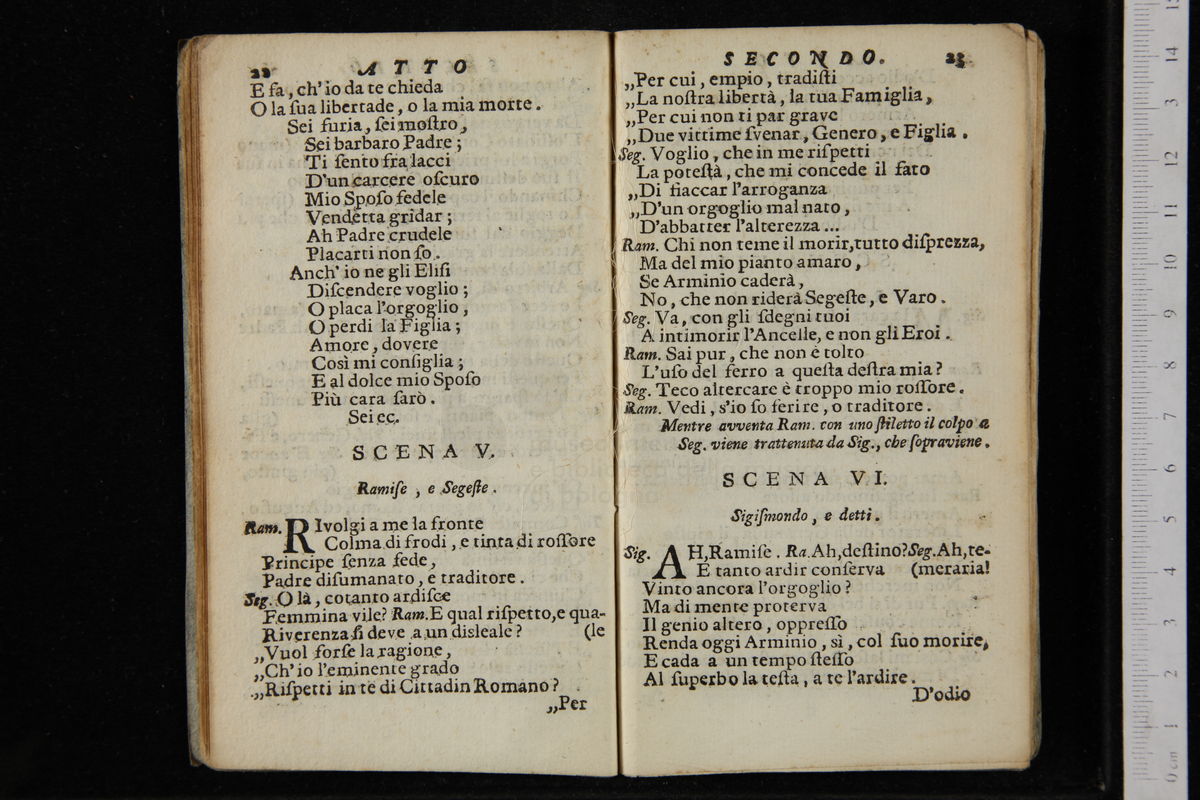 22 ATTO
E fa, ch'io da te chieda
O la ſua libertade, o la mia morte.
Sei furia, ſei moſtro,
Sei barbaro Padre;
Ti ſento fra lacci
D'un carcere oſcuro
Mio Spoſo fedele
Vendetta gridar;
Ah Padre crudele
Placarti non ſo.
Anch'io ne gli Eliſi
Diſcendere voglio;
O placa l'orgoglio,
O perdi la Figlia;
Amore, dovere
Così mi conſiglia;
E al dolce mio Spoſo
Più cara ſarò.
Sei ec.
SCENA V.
Ramiſe, e Segeſte.
Ram. RIvolgi a me la fronte
Colma di frodi, e tinta di roſſore
Principe ſenza fede,
Padre diſumanato, e traditore.
Seg. O là, cotanto ardiſce
Femmina vile? Ram. E qual riſpetto, e qua-
Riverenza ſi deve a un disleale? (le
„Vuol forſe la ragione,
„Ch'io l'eminente grado
„Riſpetti in te di Cittadin Romano?
„Per
SECONDO. 23
„Per cui, empio, tradiſti
„La noſtra libertà, la tua Famiglia,
„Per cui non ti par grave
„Due vittime ſvenar, Genero, e Figlia.
Seg. Voglio, che in me riſpetti
La poteſtà, che mi concede il fato
„Di fiaccar l'arroganza
„D'un orgoglio mal nato,
D'abbatter l'alterezza...
Ram. Chi non teme il morir, tutto diſprezza,
Ma del mio pianto amaro,
Se Arminio caderà,
No, che non riderà Segeſte, e Varo.
Seg. Va, con gli ſdegni tuoi
A intimorir l'Ancelle, e non gli Eroi.
Ram. Sai pur, che non è tolto
L'uſo del ferro a queſta deſtra mia?
Seg. Teco altercare è troppo mio roſſore.
Ram. Vedi, s'io ſo ferire, o traditore.
Mentre avventa Ram. con uno ſtiletto il colpo a
Seg. viene trattenuta da Sig., che ſopraviene.
SCENA VI.
Sigiſmondo, e detti.
Sig. AH, Ramiſe. Ra. Ah, deſtino? Seg. Ah, te-
E tanto ardir conſerva (meraria!
Vinto ancora l'orgoglio?
Ma di mente proterva
Il genio altero, oppreſſo
Renda oggi Arminio, sì, col ſuo morire,
E cada a un tempo ſteſſo
Al ſuperbo la teſta, a te l'ardire.
D'odio